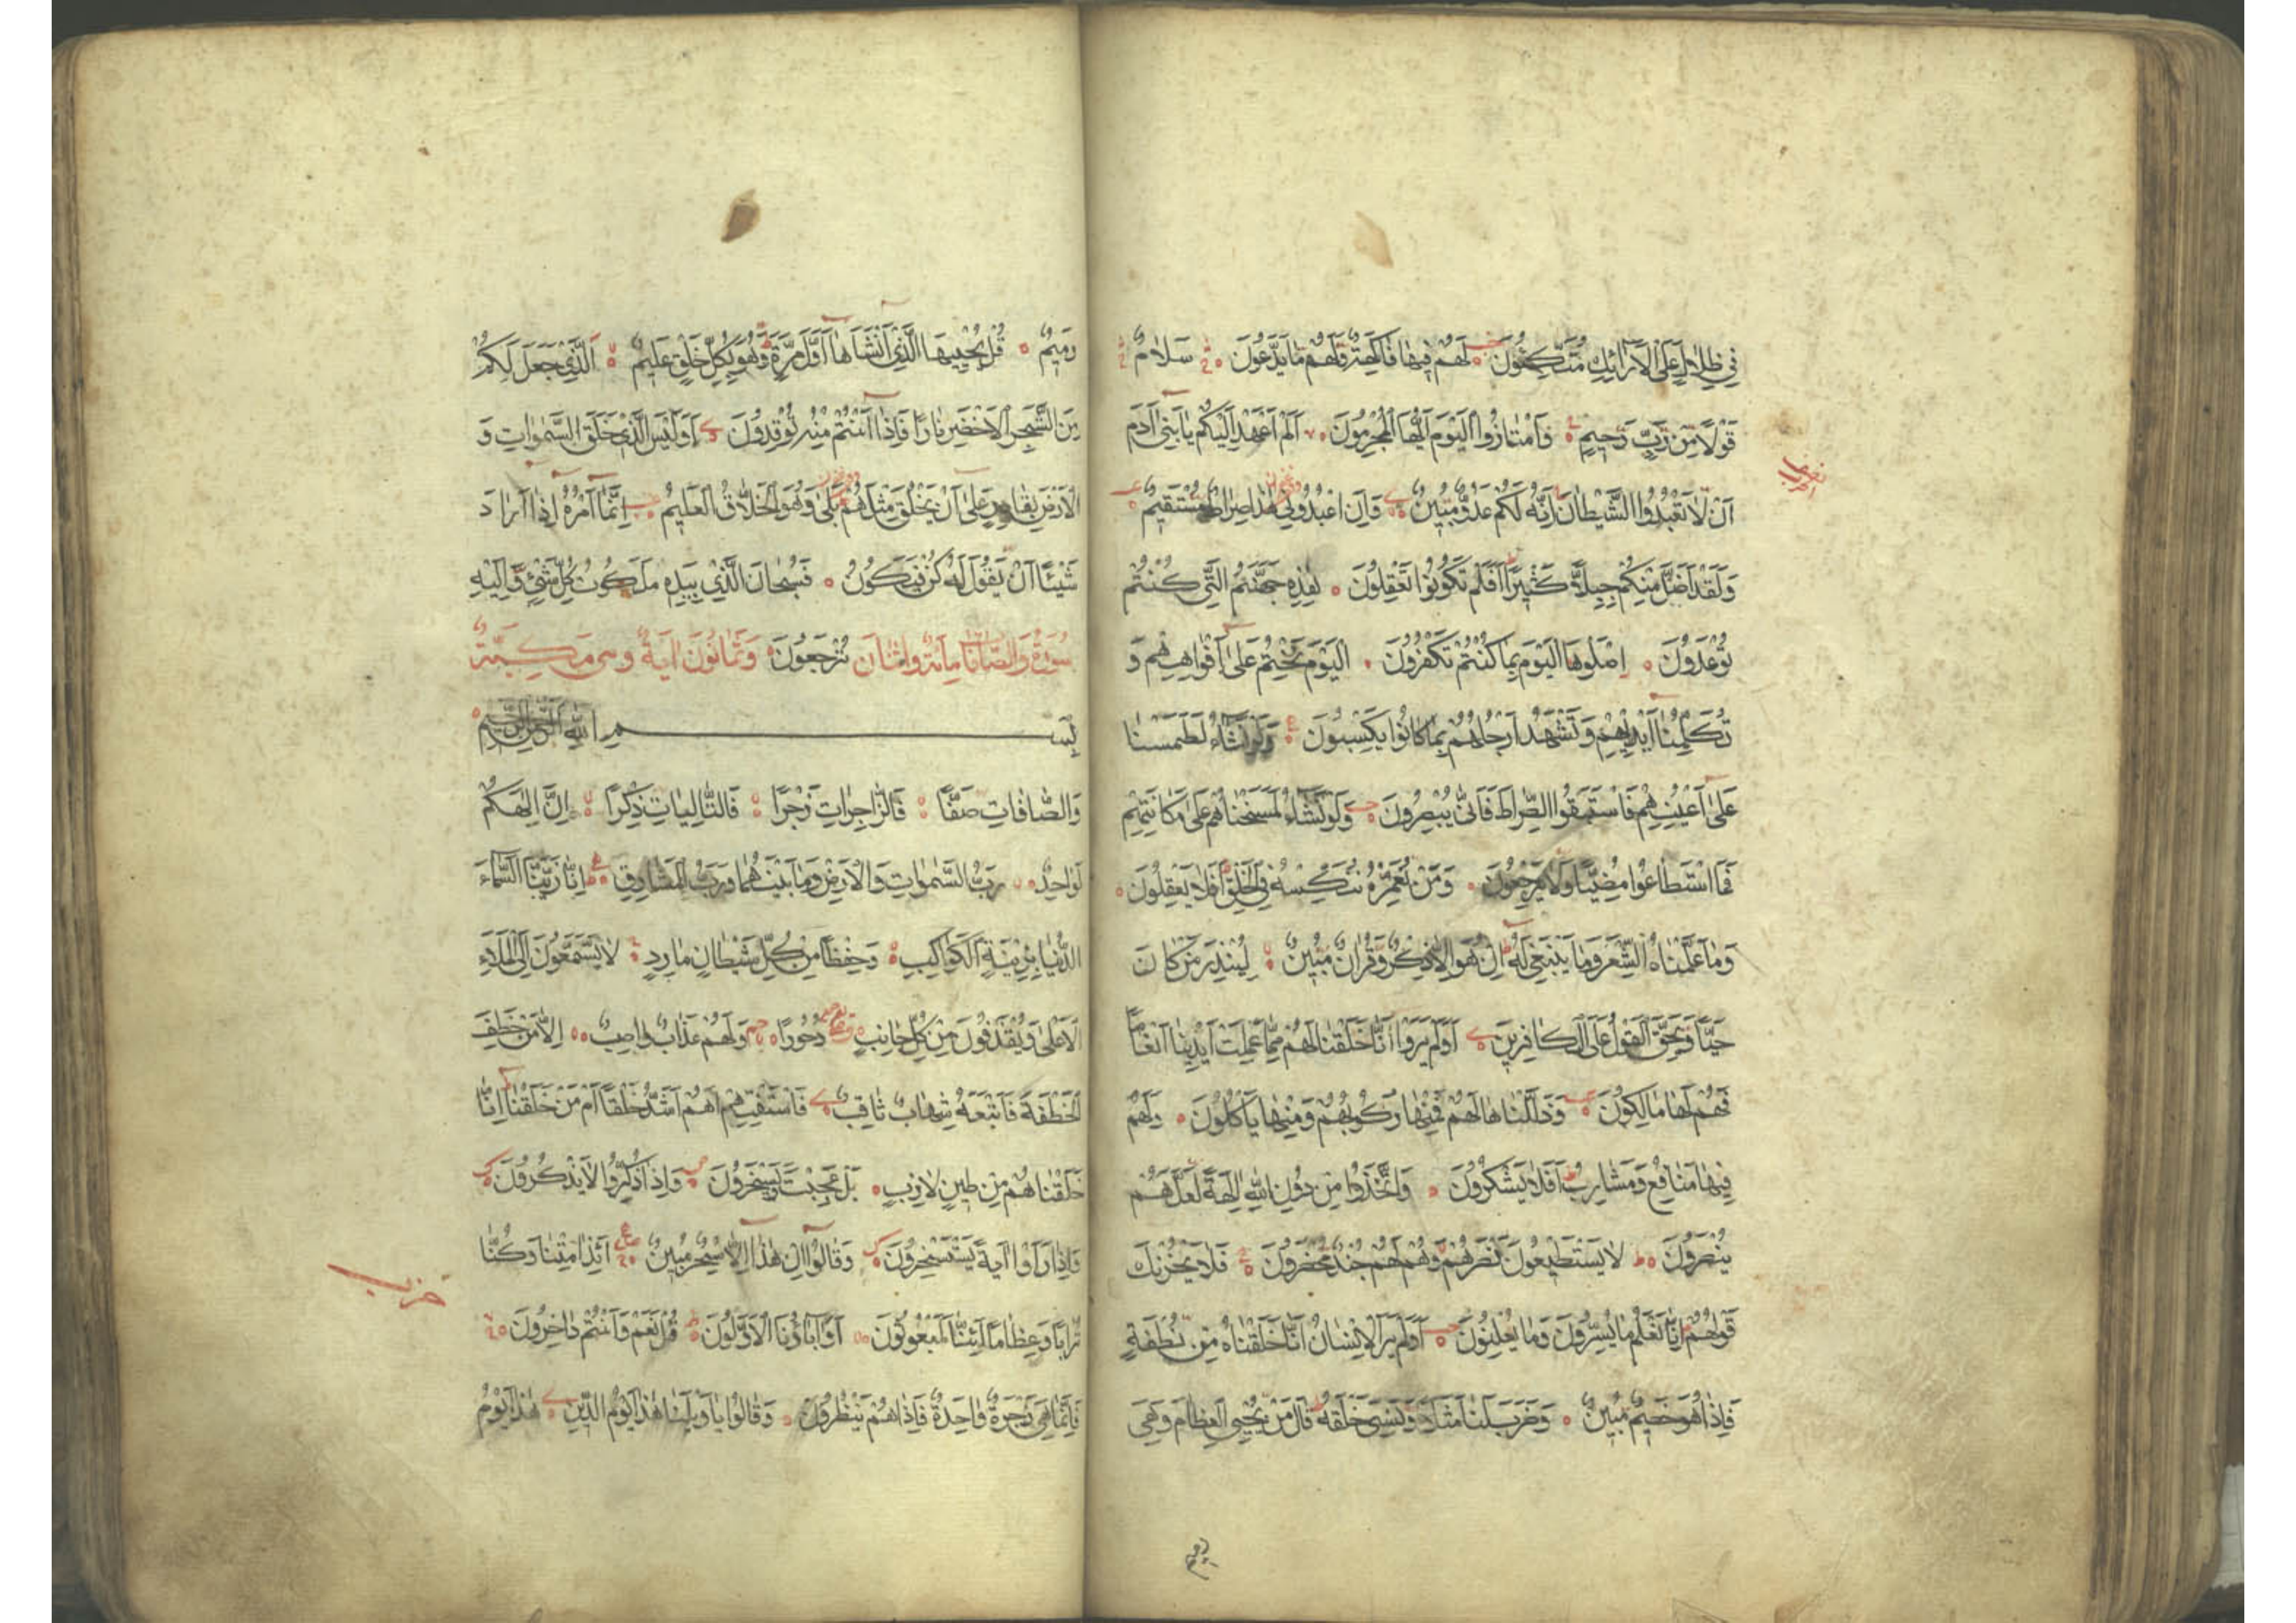 فِي ظِلَالٍ عَلَى الْاَرَائِكِ مُتَّكِئُونَ لَهُمْ فِيهَا فَاكِهَةٌ وَلَهُمْ مَا يَدَّعُونَ سَلَامٌ
قَوْلًا مِنْ رَبٍّ رَحِيمٍ وَامْتَازُوا الْيَوْمَ اَيُّهَا الْمُجْرِمُونَ اَلَمْ اَعْهَدْ اِلَيْكُمْ يَا بَنِي اٰدَمَ
اَنْ لَا تَعْبُدُوا الشَّيْطَانَ اِنَّهُ لَكُمْ عَدُوٌّ مُبِينٌ وَاَنِ اعْبُدُونِي هٰذَا صِرَاطٌ مُسْتَقِيمٌ
نصف الحزب
وَلَقَدْ اَضَلَّ مِنْكُمْ جِبِلًّا كَثِيرًا اَفَلَمْ تَكُونُوا تَعْقِلُونَ هٰذِهِ جَهَنَّمُ الَّتِي كُنْتُمْ
تُوعَدُونَ اِصْلَوْهَا الْيَوْمَ بِمَا كُنْتُمْ تَكْفُرُونَ اَلْيَوْمَ نَخْتِمُ عَلَى اَفْوَاهِهِمْ وَ
تُكَلِّمُنَا اَيْدِيهِمْ وَتَشْهَدُ اَرْجُلُهُمْ بِمَا كَانُوا يَكْسِبُونَ وَلَوْ نَشَاءُ لَطَمَسْنَا
عَلَى اَعْيُنِهِمْ فَاسْتَبَقُوا الصِّرَاطَ فَاَنَّى يُبْصِرُونَ وَلَوْ نَشَاءُ لَمَسَخْنَاهُمْ عَلَى مَكَانَتِهِمْ
فَمَا اسْتَطَاعُوا مُضِيًّا وَلَا يَرْجِعُونَ وَمَنْ نُعَمِّرْهُ نُنَكِّسْهُ فِي الْخَلْقِ اَفَلَا يَعْقِلُونَ
وَمَا عَلَّمْنَاهُ الشِّعْرَ وَمَا يَنْبَغِي لَهُ اِنْ هُوَ اِلَّا ذِكْرٌ وَقُرْاٰنٌ مُبِينٌ لِيُنْذِرَ مَنْ كَانَ
حَيًّا وَيَحِقَّ الْقَوْلُ عَلَى الْكَافِرِينَ اَوَلَمْ يَرَوْا اَنَّا خَلَقْنَا لَهُمْ مِمَّا عَمِلَتْ اَيْدِينَا اَنْعَامًا
فَهُمْ لَهَا مَالِكُونَ وَذَلَّلْنَاهَا لَهُمْ فَمِنْهَا رَكُوبُهُمْ وَمِنْهَا يَأْكُلُونَ وَلَهُمْ
فِيهَا مَنَافِعُ وَمَشَارِبُ اَفَلَا يَشْكُرُونَ وَاتَّخَذُوا مِنْ دُونِ اللّٰهِ اٰلِهَةً لَعَلَّهُمْ
يُنْصَرُونَ لَا يَسْتَطِيعُونَ نَصْرَهُمْ وَهُمْ لَهُمْ جُنْدٌ مُحْضَرُونَ فَلَا يَحْزُنْكَ
قَوْلُهُمْ اِنَّا نَعْلَمُ مَا يُسِرُّونَ وَمَا يُعْلِنُونَ اَوَلَمْ يَرَ الْاِنْسَانُ اَنَّا خَلَقْنَاهُ مِنْ نُطْفَةٍ
فَاِذَا هُوَ خَصِيمٌ مُبِينٌ وَضَرَبَ لَنَا مَثَلًا وَنَسِيَ خَلْقَهُ قَالَ مَنْ يُحْيِي الْعِظَامَ وَهِيَ
رميم
رَمِيمٌ قُلْ يُحْيِيهَا الَّذِي اَنْشَاَهَا اَوَّلَ مَرَّةٍ وَهُوَ بِكُلِّ خَلْقٍ عَلِيمٌ اَلَّذِي جَعَلَ لَكُمْ
مِنَ الشَّجَرِ الْاَخْضَرِ نَارًا فَاِذَا اَنْتُمْ مِنْهُ تُوقِدُونَ اَوَلَيْسَ الَّذِي خَلَقَ السَّمٰوَاتِ وَ
الْاَرْضَ بِقَادِرٍ عَلَى اَنْ يَخْلُقَ مِثْلَهُمْ بَلَى وَهُوَ الْخَلَّاقُ الْعَلِيمُ اِنَّمَا اَمْرُهُ اِذَا اَرَادَ
شَيْئًا اَنْ يَقُولَ لَهُ كُنْ فَيَكُونُ فَسُبْحَانَ الَّذِي بِيَدِهِ مَلَكُوتُ كُلِّ شَيْءٍ وَاِلَيْهِ
سُورَةُ وَالصَّافَّات مِايَةٌ وَاثْنَانِ تُرْجَعُونَ وَثَمَانُونَ اٰيَةً وهى مَكِّيَّةٌ
بِسْمِ اللّٰهِ الرَّحْمٰنِ الرَّحِيمِ
وَالصَّافَّاتِ صَفًّا فَالزَّاجِرَاتِ زَجْرًا فَالتَّالِيَاتِ ذِكْرًا اِنَّ اِلٰهَكُمْ
لَوَاحِدٌ رَبُّ السَّمٰوَاتِ وَالْاَرْضِ وَمَا بَيْنَهُمَا وَرَبُّ الْمَشَارِقِ اِنَّا زَيَّنَّا السَّمَاءَ
الدُّنْيَا بِزِينَةٍ الْكَوَاكِبِ وَحِفْظًا مِنْ كُلِّ شَيْطَانٍ مَارِدٍ لَا يَسَّمَّعُونَ اِلَى الْمَلَاِ
الْاَعْلَى وَيُقْذَفُونَ مِنْ كُلِّ جَانِبٍ دُحُورًا وَلَهُمْ عَذَابٌ وَاصِبٌ اِلَّا مَنْ خَطِفَ
الْخَطْفَةَ فَاَتْبَعَهُ شِهَابٌ ثَاقِبٌ فَاسْتَفْتِهِمْ اَهُمْ اَشَدُّ خَلْقًا اَمْ مَنْ خَلَقْنَا اِنَّا
خَلَقْنَاهُمْ مِنْ طِينٍ لَازِبٍ بَلْ عَجِبْتَ وَيَسْخَرُونَ وَاِذَا ذُكِّرُوا لَا يَذْكُرُونَ
وَاِذَا رَاَوْا اٰيَةً يَسْتَسْخِرُونَ وَقَالُوا اِنْ هٰذَا اِلَّا سِحْرٌ مُبِينٌ اَئِذَا مِتْنَا وَكُنَّا
حزب
تُرَابًا وَعِظَامًا اَئِنَّا لَمَبْعُوثُونَ اَوَاٰبَاؤُنَا الْاَوَّلُونَ قُلْ نَعَمْ وَاَنْتُمْ دَاخِرُونَ
فَاِنَّمَا هِيَ زَجْرَةٌ وَاحِدَةٌ فَاِذَا هُمْ يَنْظُرُونَ وَقَالُوا يَا وَيْلَنَا هٰذَا يَوْمُ الدِّينِ هٰذَا يَوْمُ